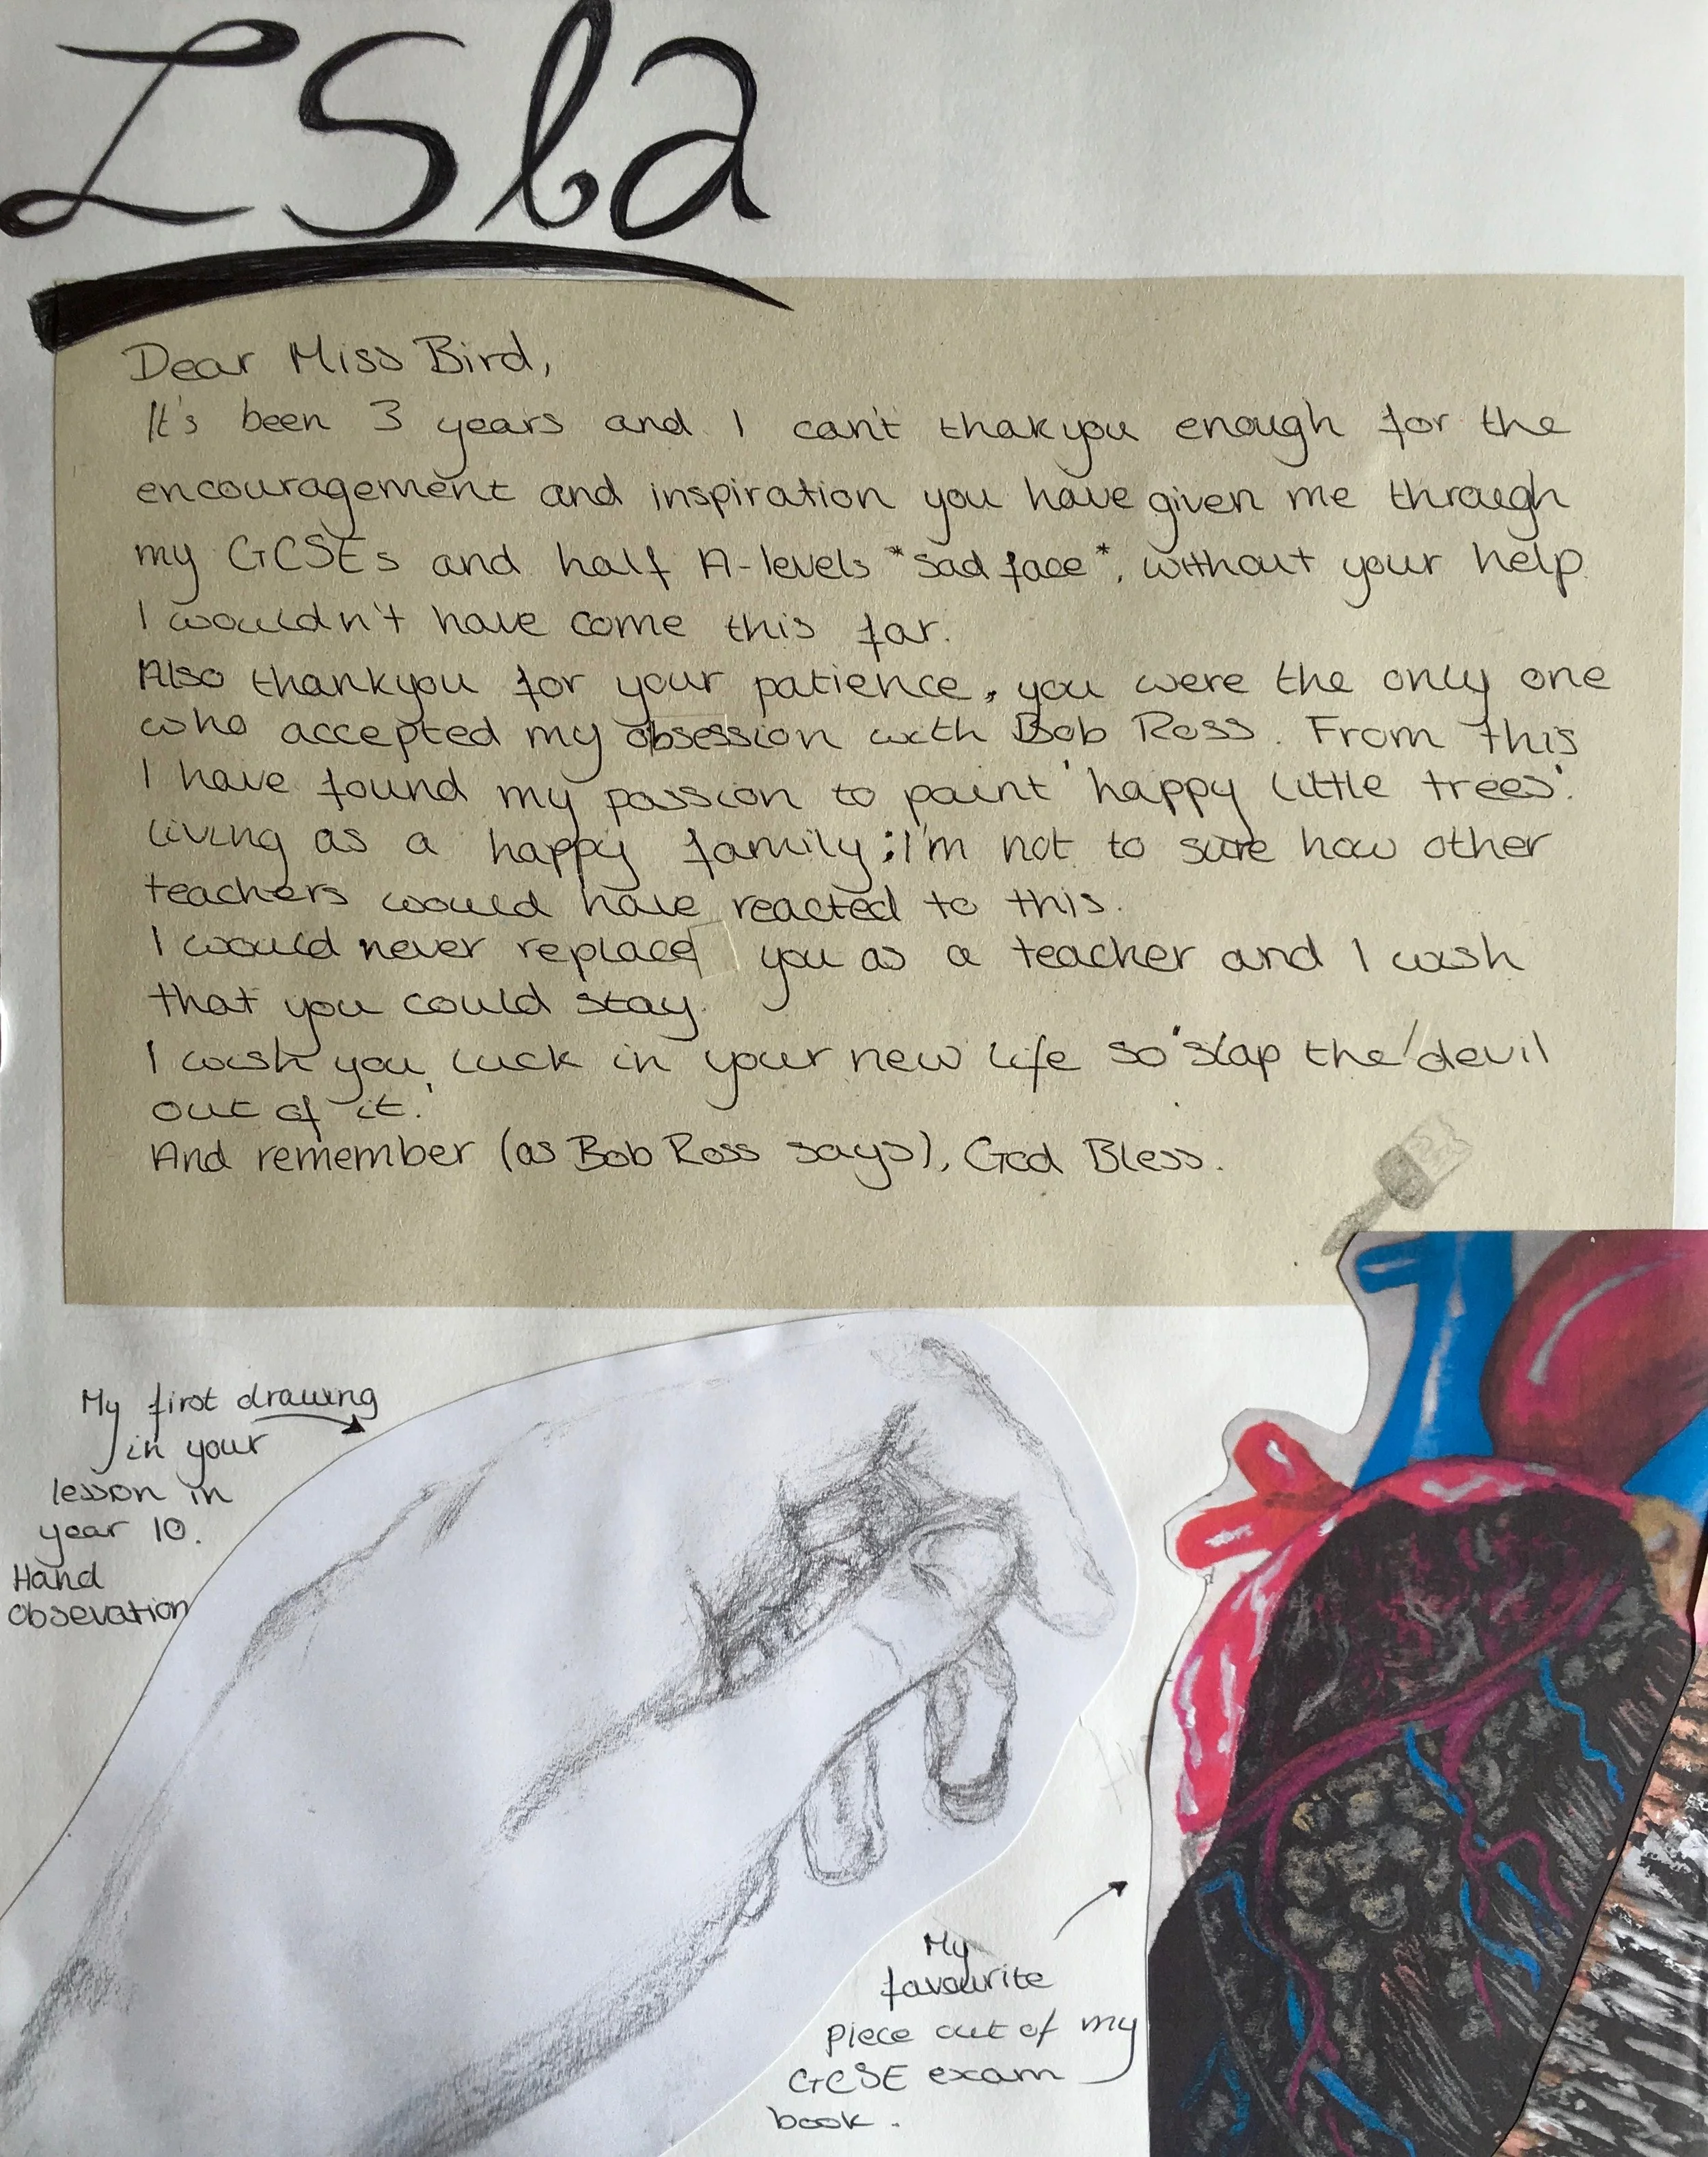 Isla
Dear Miss Bird,
It's been 3 years and I can't thakyou enough for the
encouragement and inspiration you have given me through
my GCSEs and half A-levels *sad face*, without your help
I wouldn't have come this far.
Also thankyou for your patience, you were the only one
who accepted my obsession with Bob Ross. From this
I have found my passion to paint 'happy little trees'
living as a happy family; I'm not to sure how other
teachers would have reacted to this.
I would never replace you as a teacher and I wish
that you could stay.
I wish you luck in your new life so 'slap the devil
out of it.'
And remember (as Bob Ross says), God Bless.
My first drawing
in your
lesson in
year 10.
Hand
obsevation
My
favourite
piece out of my
GCSE exam
book.